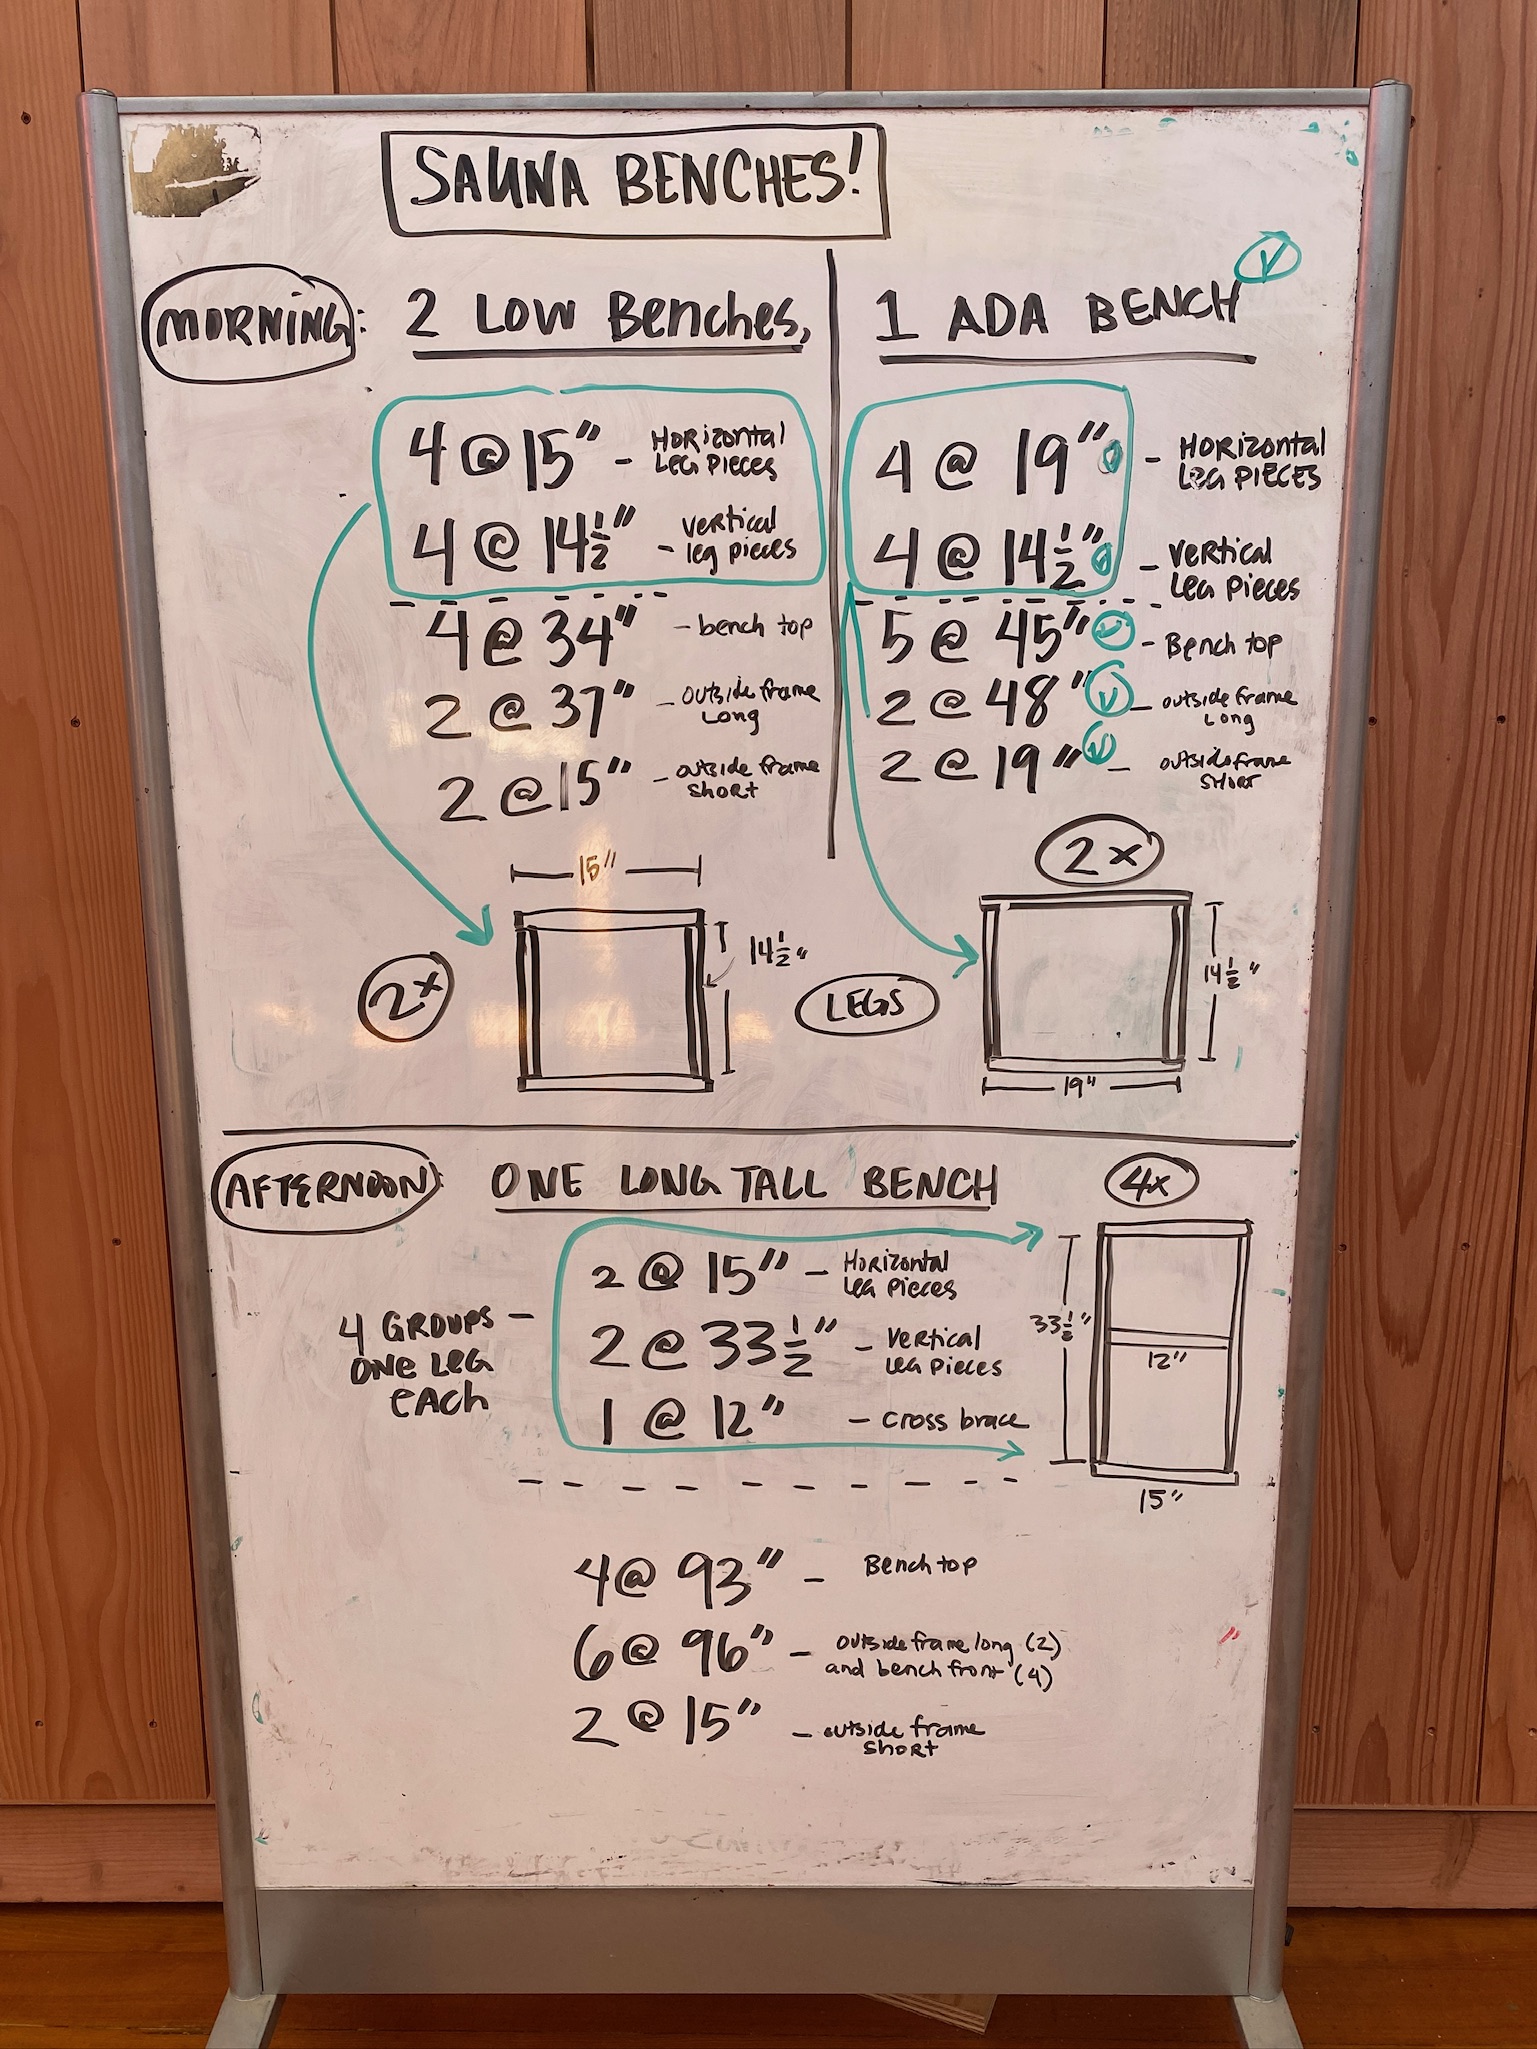 SAUNA BENCHES!
MORNING:
2 LOW Benches,
4 @ 15" - Horizontal
Leg Pieces
4 @ 14 1/2" - vertical
leg pieces
4 @ 34" - bench top
2 @ 37" - outside frame
Long
2 @ 15" - outside frame
short
15"
2x
14 1/2"
1 ADA BENCH
4 @ 19" - HORIZONTAL
Leg PIECES
4 @ 14 1/2" - Vertical
Leg Pieces
5 @ 45" - Bench top
2 @ 48" - outside frame
Long
2 @ 19" - outside frame
short
2x
14 1/2"
LEGS
19"
AFTERNOON:
ONE LONG TALL BENCH
4x
4 GROUPS -
ONE LEG
eACH
2 @ 15" - Horizontal
Leg Pieces
2 @ 33 1/2" - Vertical
Leg Pieces
1 @ 12" - cross brace
33 1/2"
12"
15"
4@ 93" - Bench top
6@ 96" - outside frame long (2)
and bench front (4)
2 @ 15" - outside frame
short